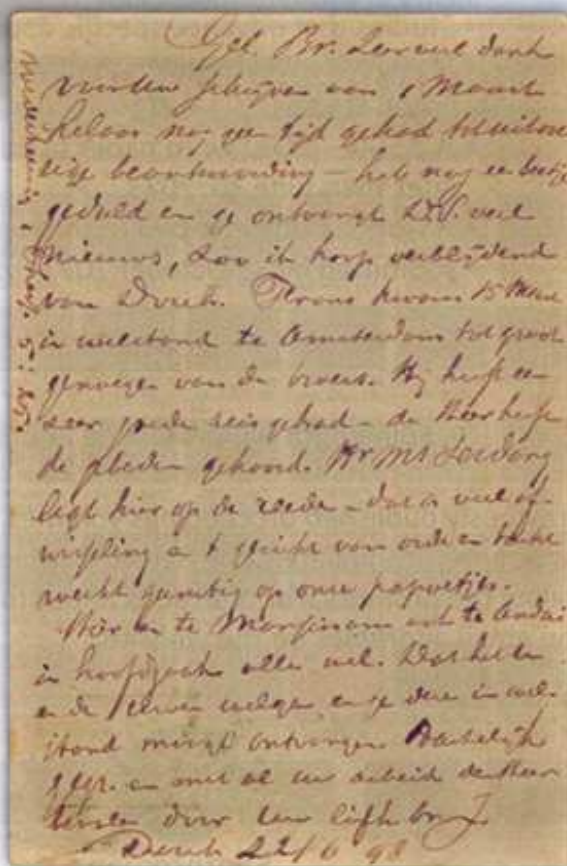 Gel. Br. Zeer veel dank
voor uw schrijven van 1 Maart
helaas nog geen tijd gehad tot uitvoe
rige beantwoording – heb nog een beetje
geduld en ge ontvangt D.V. veel
nieuws, zoo ik hoop verblijdend
van Doreh. kwam 15 Mei
in welstand te Amsterdam tot groot
genoegen van de broers. Hij heeft een
zeer goede reis gehad – de Heer heeft
de gehoord. Hr Ms
ligt hier op de reede – dat is veel af
wisseling en 't gezicht van orde en tucht
werkt gunstig op onze papoetjes.
Hier en te Mansinam ook te Andai
in hoofdzaak alles wel. Dat het
en de uwen welga en ge deze in wel
stand moogt ontvangen. Hartelijk
gegr. en met al uw arbeid den Heer
bevolen door uw liefh. br. J
Doreh 22/6 98